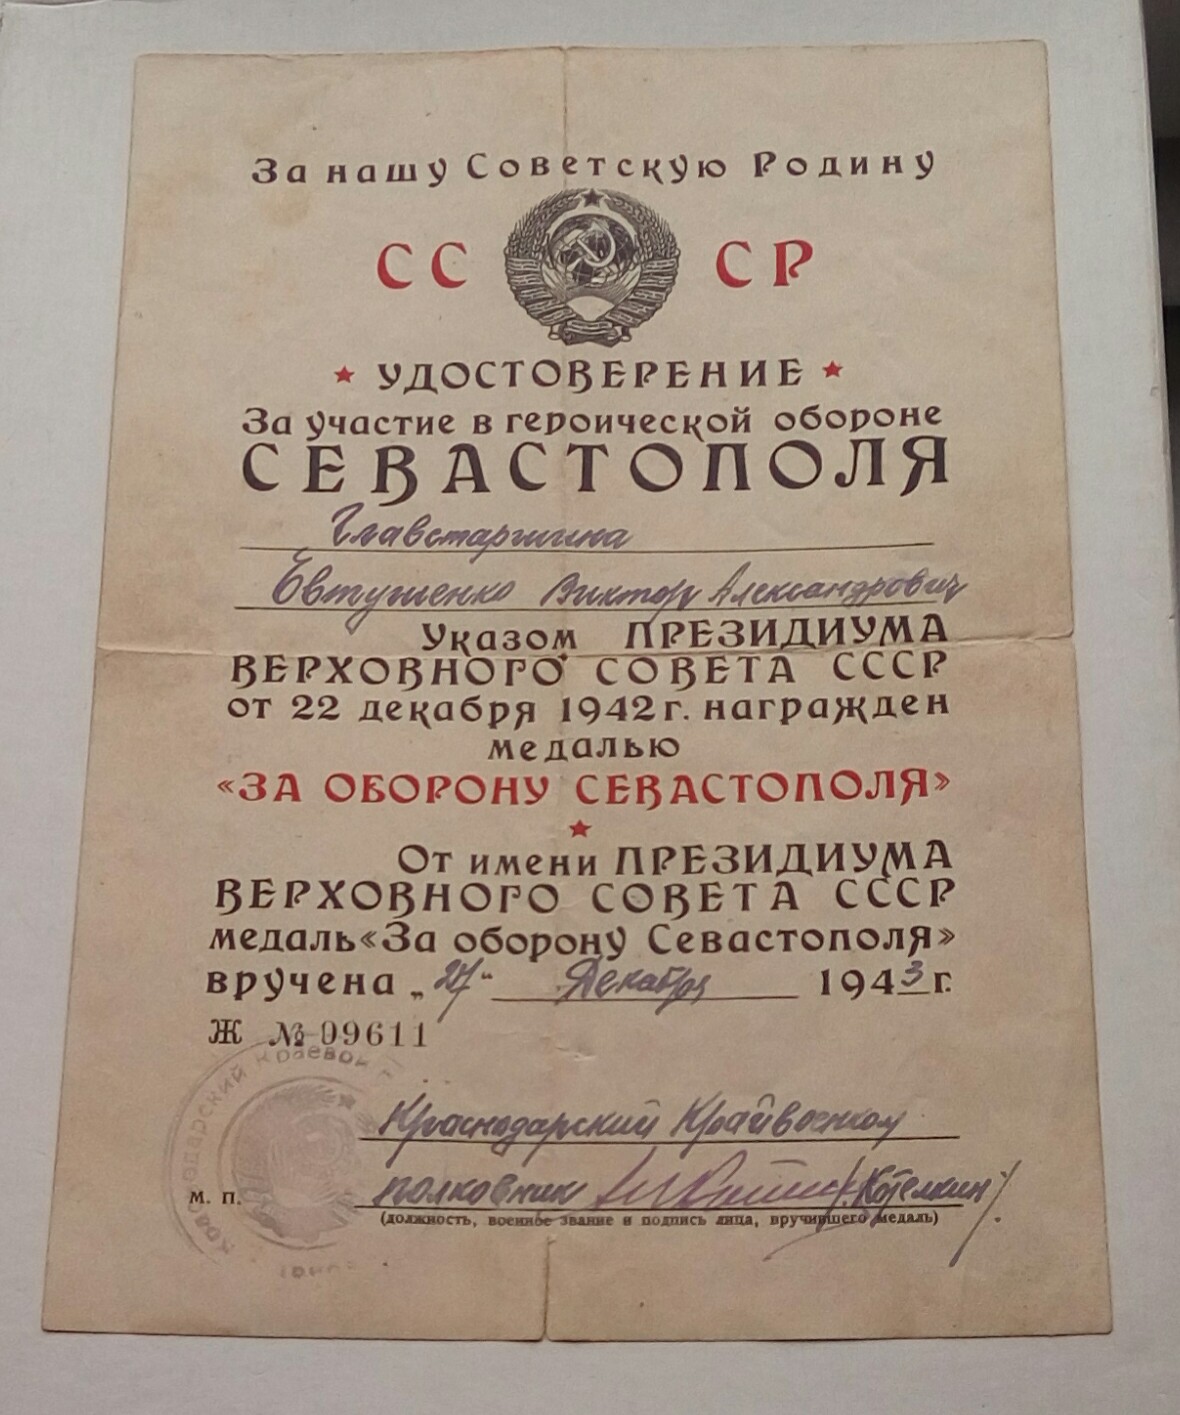 За нашу Советскую Родину
СС СР
УДОСТОВЕРЕНИЕ
За участие в героической обороне
СЕВАСТОПОЛЯ
Главстаршина
Евтушенко Виктор Александрович
Указом ПРЕЗИДИУМА
ВЕРХОВНОГО СОВЕТА СССР
от 22 декабря 1942 г. награжден
медалью
«ЗА ОБОРОНУ СЕВАСТОПОЛЯ»
От имени ПРЕЗИДИУМА
ВЕРХОВНОГО СОВЕТА СССР
медаль «За оборону Севастополя»
вручена „27" Декабря 1943 г.
Ж № 09611
Краснодарский Крайвоенком
м. п. полковник /Котелкин/
(должность, военное звание и подпись лица, вручившего медаль)